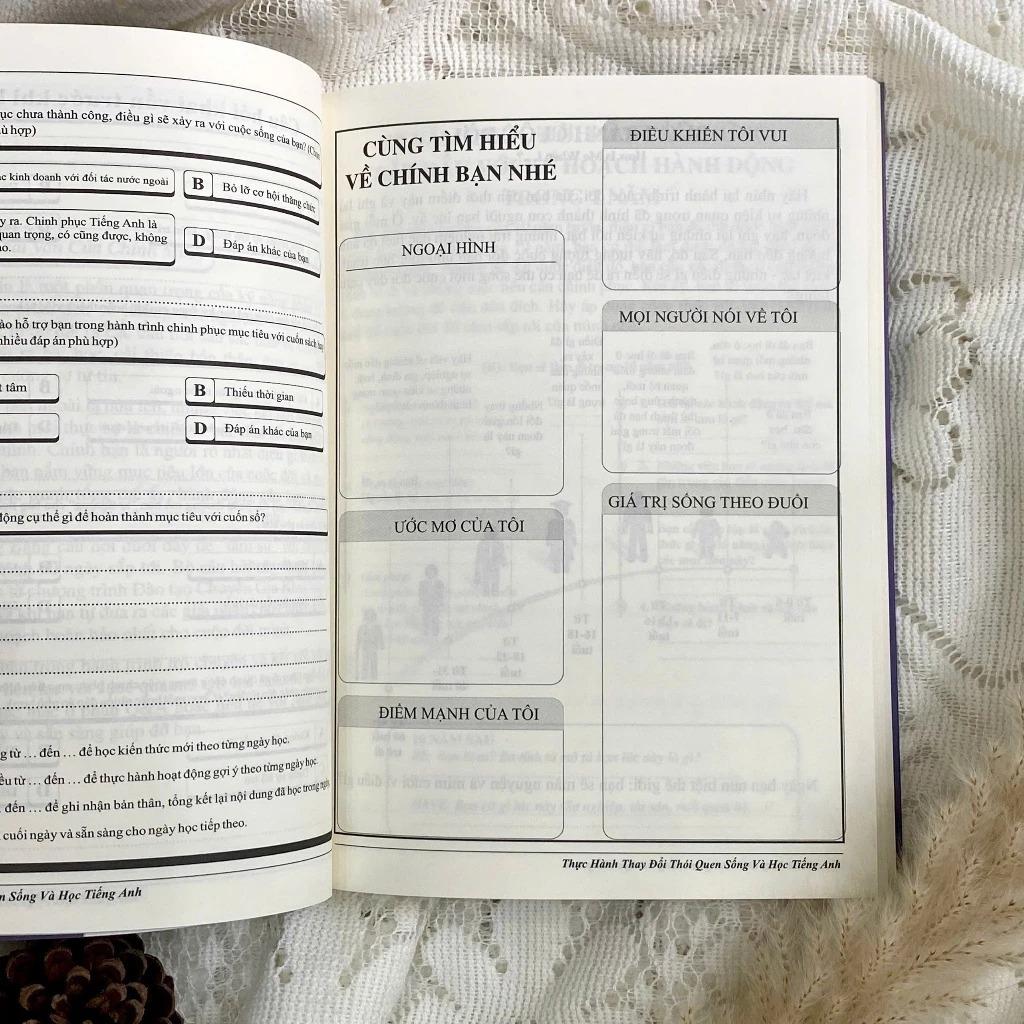 ục chưa thành công, điều gì sẽ xảy ra với cuộc sống của bạn? (Chọn
hù hợp)
ác kinh doanh với đối tác nước ngoài
B Bỏ lỡ cơ hội thăng chức
y ra. Chinh phục Tiếng Anh là
quan trọng, có cũng được, không
ao.
D Đáp án khác của bạn
ào hỗ trợ bạn trong hành trình chinh phục mục tiêu với cuốn sách
nhiều đáp án phù hợp)
t tâm
B Thiếu thời gian
D Đáp án khác của bạn
động cụ thể gì để hoàn thành mục tiêu với cuốn sổ?
g từ … đến … để học kiến thức mới theo từng ngày học.
ều từ … đến … để thực hành hoạt động gợi ý theo từng ngày học.
. đến … để ghi nhận bản thân, tổng kết lại nội dung đã học trong ngày
cuối ngày và sẵn sàng cho ngày học tiếp theo.
n Sống Và Học Tiếng Anh
CÙNG TÌM HIỂU
VỀ CHÍNH BẠN NHÉ
NGOẠI HÌNH
ƯỚC MƠ CỦA TÔI
ĐIỂM MẠNH CỦA TÔI
ĐIỀU KHIẾN TÔI VUI
MỌI NGƯỜI NÓI VỀ TÔI
GIÁ TRỊ SỐNG THEO ĐUỔI
Thực Hành Thay Đổi Thói Quen Sống Và Học Tiếng Anh